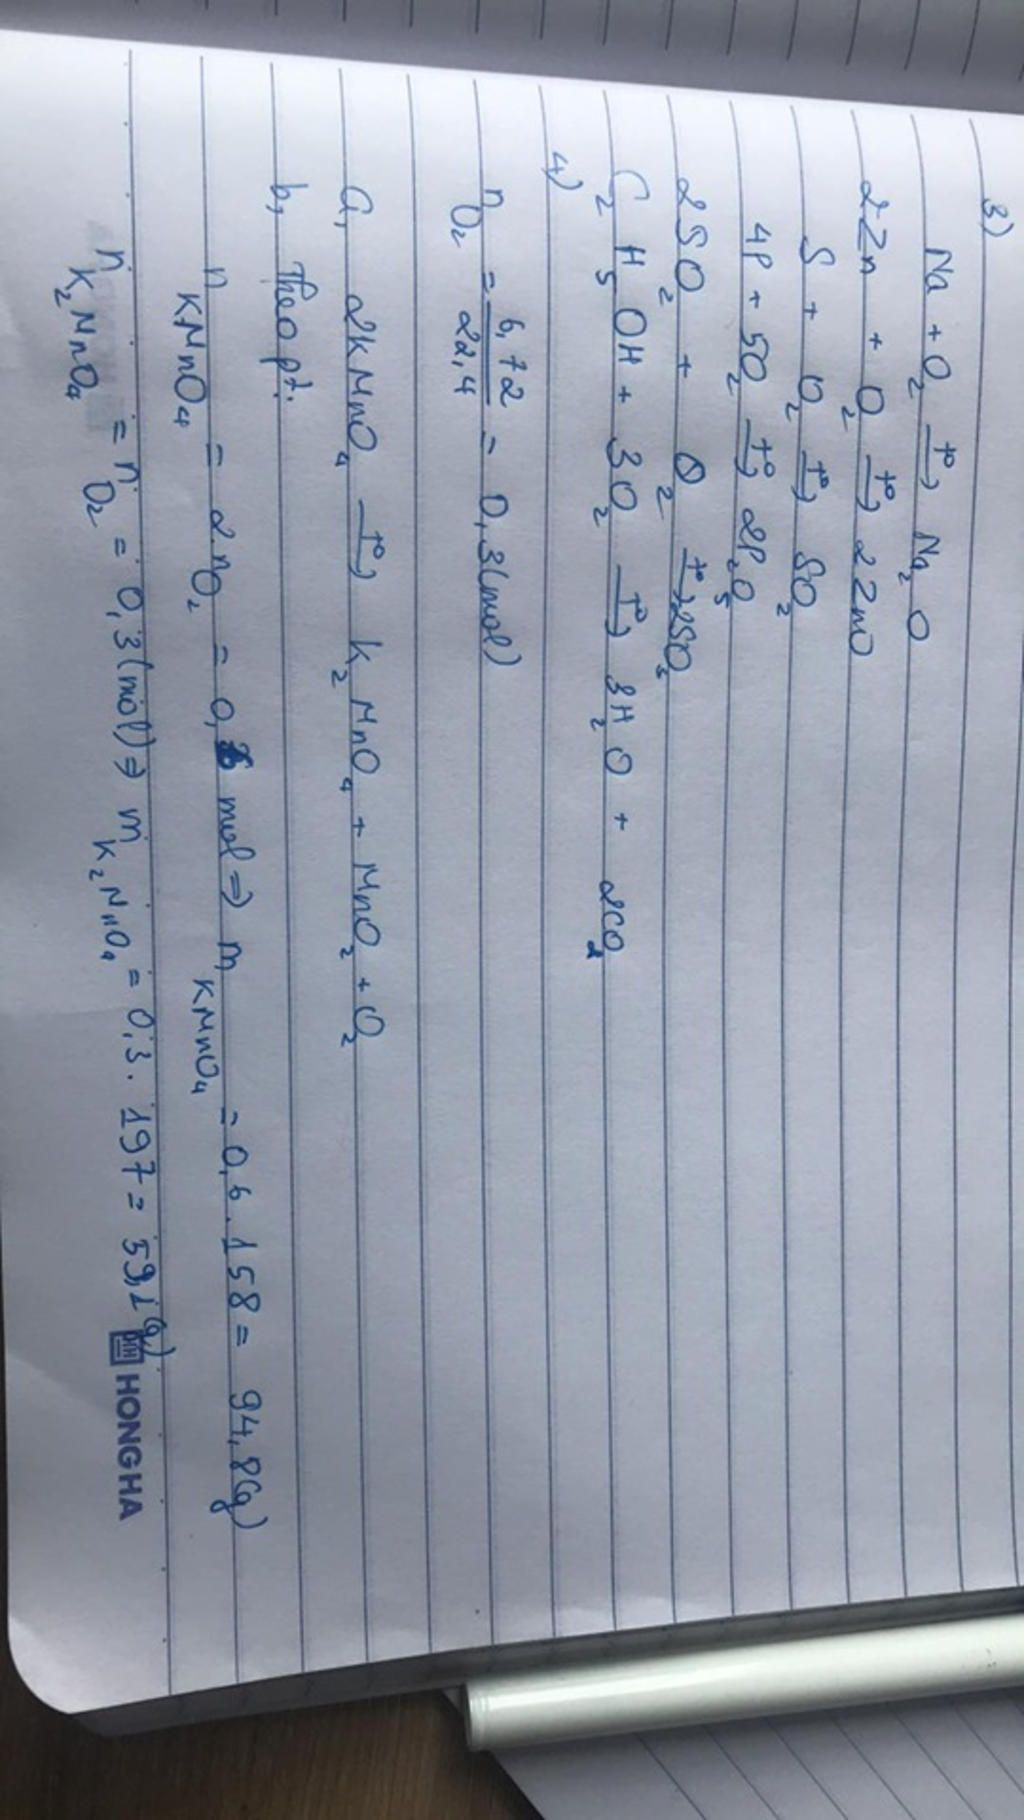 3)
Na + O2 t°→ Na2O
2Zn + O2 t°→ 2ZnO
S + O2 t°→ SO2
4P + 5O2 t°→ 2P2O5
2SO2 + O2 t°→ 2SO3
C2H5OH + 3O2 t°→ 3H2O + 2CO2
4)
nO2 = 6,72/22,4 = 0,3(mol)
a, 2KMnO4 t°→ K2MnO4 + MnO2 + O2
b, Theo pt:
nKMnO4 = 2nO2 = 0,6 mol ⇒ mKMnO4 = 0,6 . 158 = 94,8(g)
nK2MnO4 = nO2 = 0,3(mol) ⇒ mK2MnO4 = 0,3 . 197 = 59,1(g)
HH HONG HA